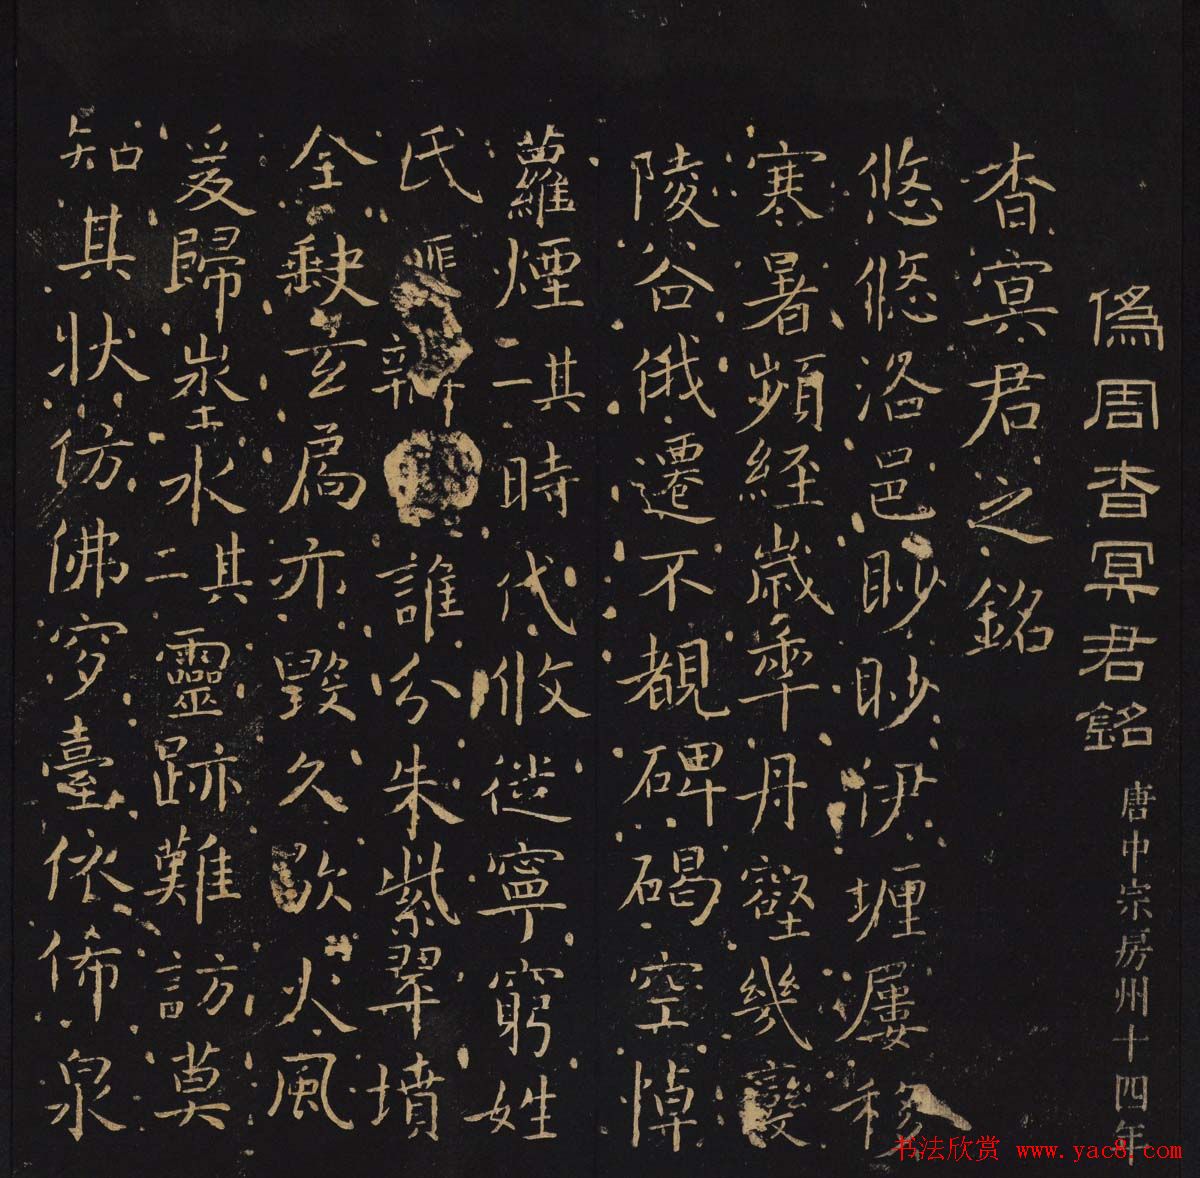 偽周杳冥君銘 唐中宗房州十四年
杳冥君之銘
悠悠洛邑眇眇伊壥屢移
寒暑頻經歲秊丹壑幾變
陵谷俄遷不覩碑碣空悼
蘿煙其一時代攸徙寧窮姓
氏匪辨誰分朱紫翠墳
全缺玄扃亦毀久歇火風
爰歸埊水其二靈跡難訪莫
知其狀仿佛穸臺依俙泉
书法欣赏 www.yac8.com